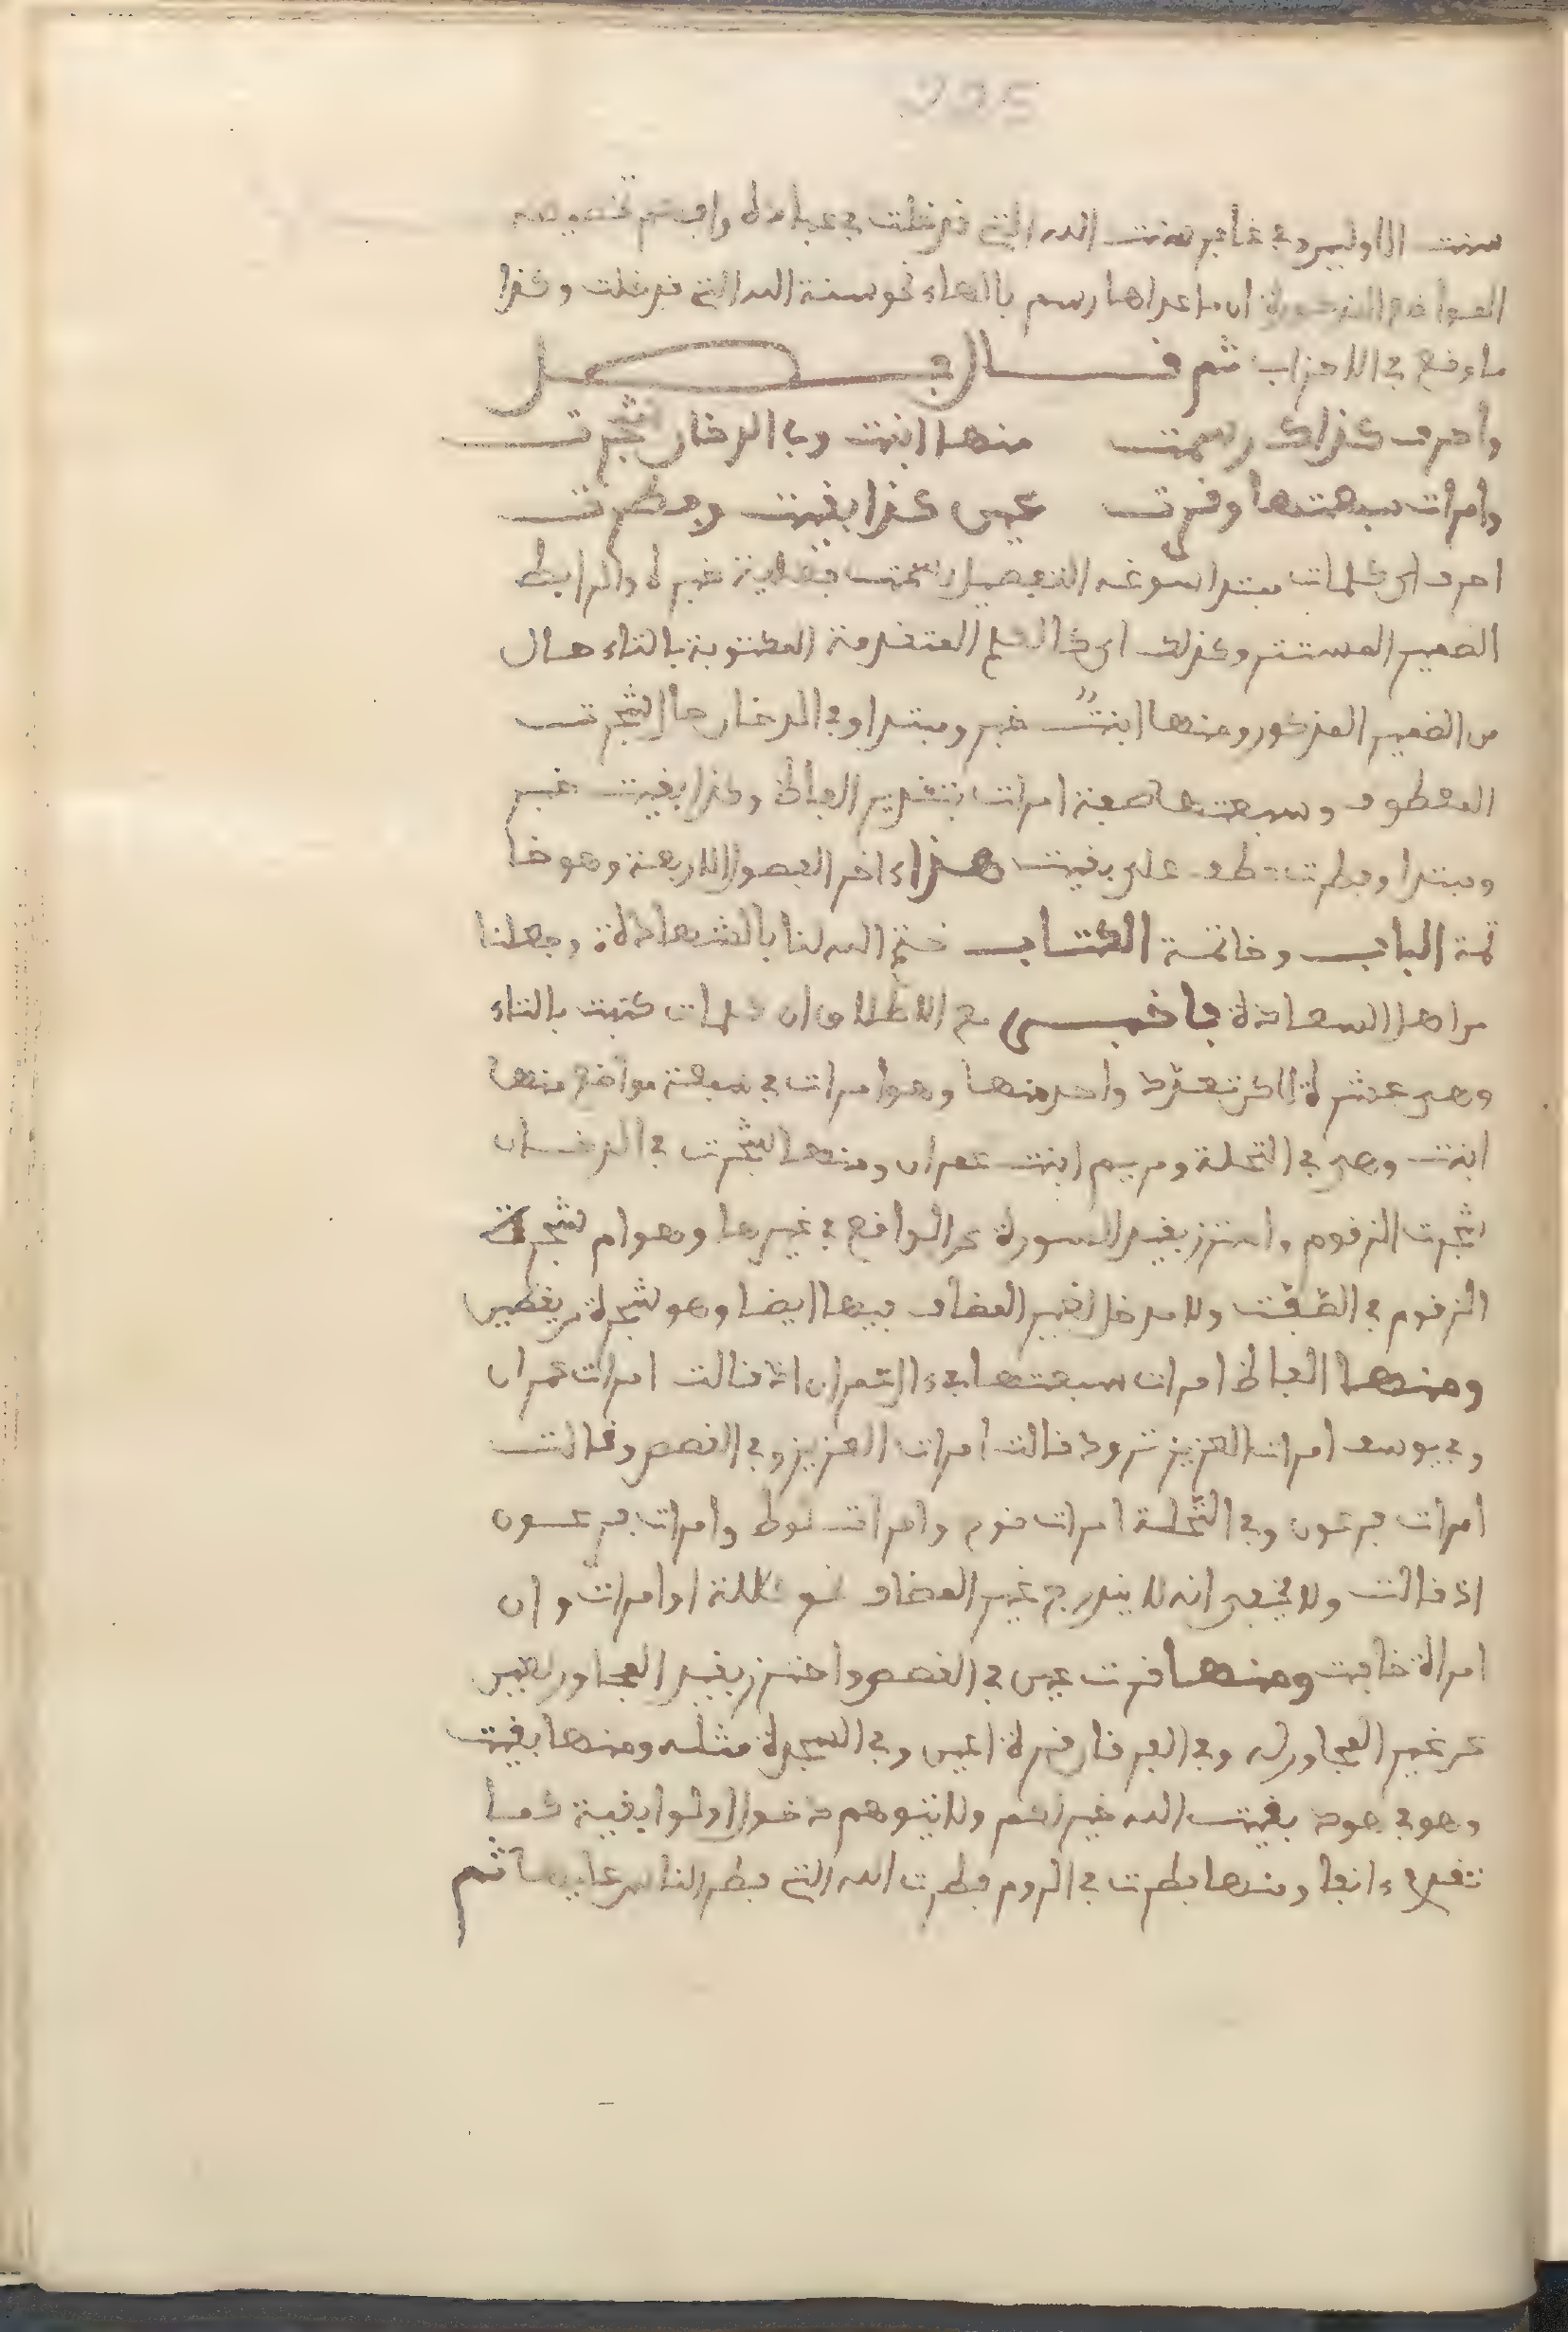 225
سنت الاولين وفي غافر سنت الله التي قد خلت في عباده وافهم تخصيصه
المواضع المذكورة ان ما عداها رسم بالهاء نحو سنة الله التي قد خلت وكذا
ما وقع في الاحزاب ثم قال فصل
واحرف كذاك رسمت منها ابنت وفي الدخان شجرت
وامرات سبعتها وقرت عين كذا بقيت وفطرت
احرف اي كلمات مبتدا سوغه التفصيل رسمت فعلية خبره والرابط
الضمير المستتر وكذلك اي كالكلم المتقدمة المكتوبة بالتاء حال
من الضمير المذكور ومنها ابنت خبر ومبتدا وفي الدخان حال شجرت
المعطوف وسبعتها صفة امرات بتقدير العاطف وكذا بقيت خبر
ومبتدا وفطرت عطف على بقيت هذا ءاخر الفصول الاربعة وهو خا
تمة الباب وخاتمة الكتاب ختم الله لنا بالشهادة وجعلنا
من اهل السعادة فاخبر مع الاطلاق ان كلمات كتبت بالتاء
وهي عشرة الاكن تعدد واحد منها وهو امرات في سبعة مواضع منها
ابنت وهي في التحلة ومريم ابنت عمران ومنها شجرت في الدخان
شجرت الزقوم واحترز بقيد السورة عن الواقع في غيرها وهو ام شجرة
الزقوم في الصفت ولا مدخل لغير المضاف فيها ايضا وهو شجرة من يقطين
ومنها الفاظ امرات سبعتها في ءال عمران اذ قالت امرات عمران
وفي يوسف امرات العزيز ترود قالت امرات العزيز وفي القصص وقالت
امرات فرعون وفي التحلة امرات نوح وامرات لوط وامرات فرعون
اذ قالت ولا يخفى انه لا يندرج غير المضاف نحو كللة او امرات وان
امراة خافت ومنها قرت عين في القصص واحترز بقيد المجاور لعين
عن غير المجاور له وفي الفرقان قرة اعين وفي السجدة مثله ومنها بقيت
وهو في هود بقيت الله خير لكم ولا يتوهم دخول اولوا بقية كما
تقدم ءانفا ومنها فطرت في الروم فطرت الله التي فطر الناس عليها ثم